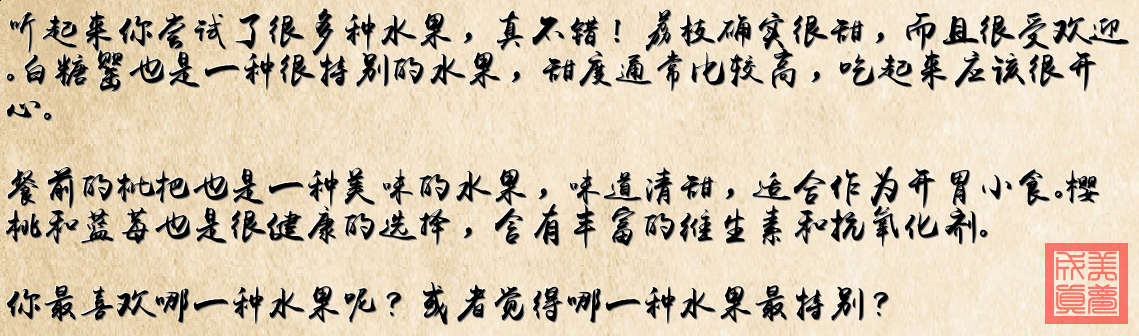 听起来你尝试了很多种水果，真不错！荔枝确实很甜，而且很受欢迎
。白糖罂也是一种很特别的水果，甜度通常比较高，吃起来应该很开
心。
餐前的枇杷也是一种美味的水果，味道清甜，适合作为开胃小食。樱
桃和蓝莓也是很健康的选择，含有丰富的维生素和抗氧化剂。
你最喜欢哪一种水果呢？或者觉得哪一种水果最特别？
美梦成真